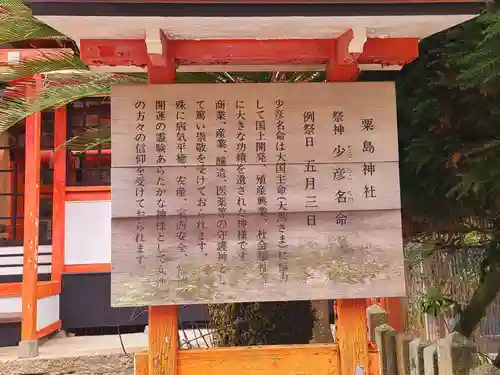 粟島神社
祭神 少彦名命
例祭日 五月三日
少彦名命は大国主命(大黒さま)に協力
して国土開発、殖産興業、社会福祉
に大きな功績を遺された神様です。
商業、産業、醸造、医薬等の守護神とし
て篤い崇敬を受けております。
殊に病気平癒、安産、家内安全、
開運の霊験あらたかな神様として
の方々の信仰を受けております。